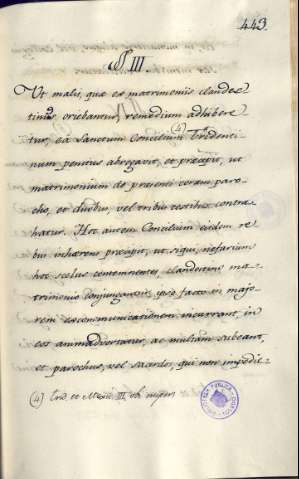 443.
§ III
Ut malis, quæ ex matrimoniis clandes-
tinis oriebantur, remedium adhibere-
tur, ea Sanctum Concilium (4) Trident-
inum penitus abrogavit, et præcipit, ut
matrimonium de presenti coram paro-
cho, et duobus, vel tribus testibus contra-
hatur. Hoc autem Concilium eisdem re-
bus inhærens præcipit, ut siqui, nefarium
hoc scelus contemnentes, clandestina ma-
trimonia conjunganturis, ipso facto in majo-
rem excommunicationem incurrant, in
eos animadvertatur, ac multam subeant,
et parochus, vel sacerdos, qui non impedie-
(4) Trid. et Mexic. III. ubi supra